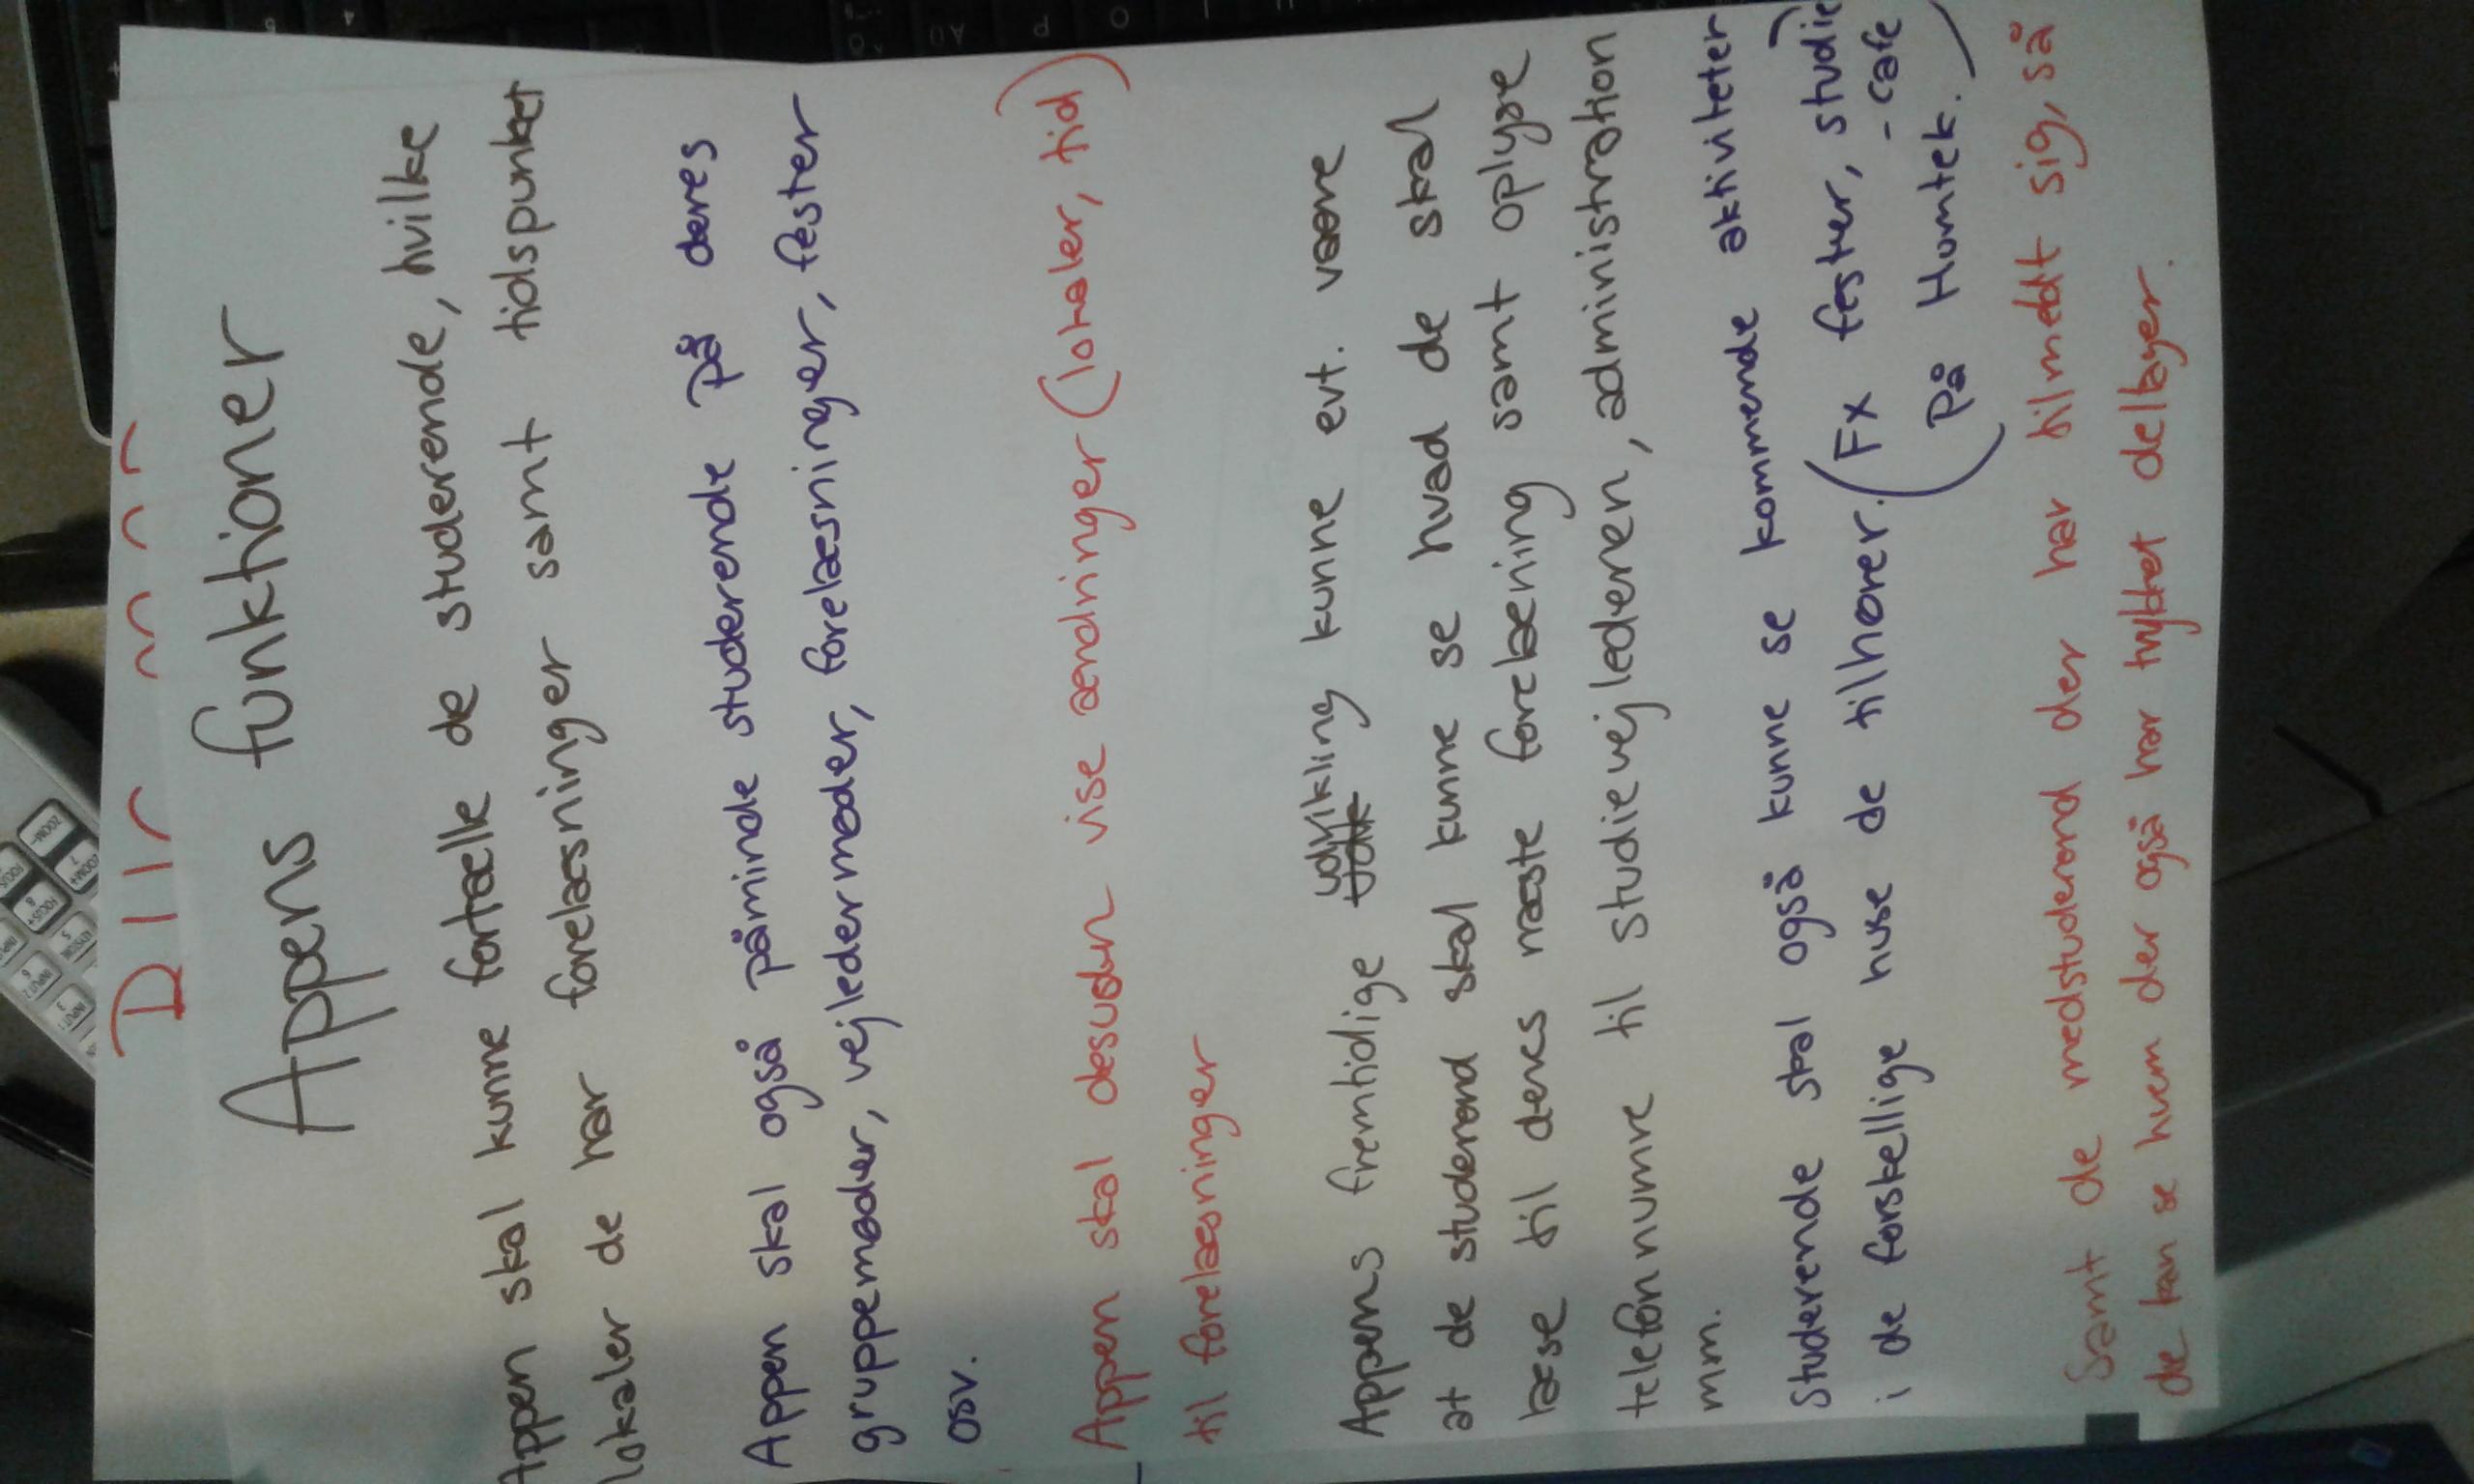 Appens funktioner
Appen skal kunne fortælle de studerende, hvilke
lokaler de har forelæsninger samt tidspunktet
Appen skal også påminde studerende på deres
gruppemøder, vejledermøder, forelæsninger, fester
osv.
Appen skal desuden vise ændringer (lokaler, tid)
til forelæsninger
Appens fremtidige udvikling kunne evt. være
at de studerend skal kunne se hvad de skal
læse til deres næste forelæsning samt oplyse
telefonnumre til studievejlederen, administration
mm.
Studerende skal også kunne se kommende aktiviteter
i de forskellige huse de tilhører. (Fx fester, studie
-cafe
på Humtek.)
Samt de medstuderend der har tilmeldt sig, så
de kan se hvem der også har trykket deltager.
INPUT 1
3
INPUT 2
6
KEYSTONE
5
FOCUS+
8
FOCUS
ZOOM+
7
ZOOM-
O
P
Å